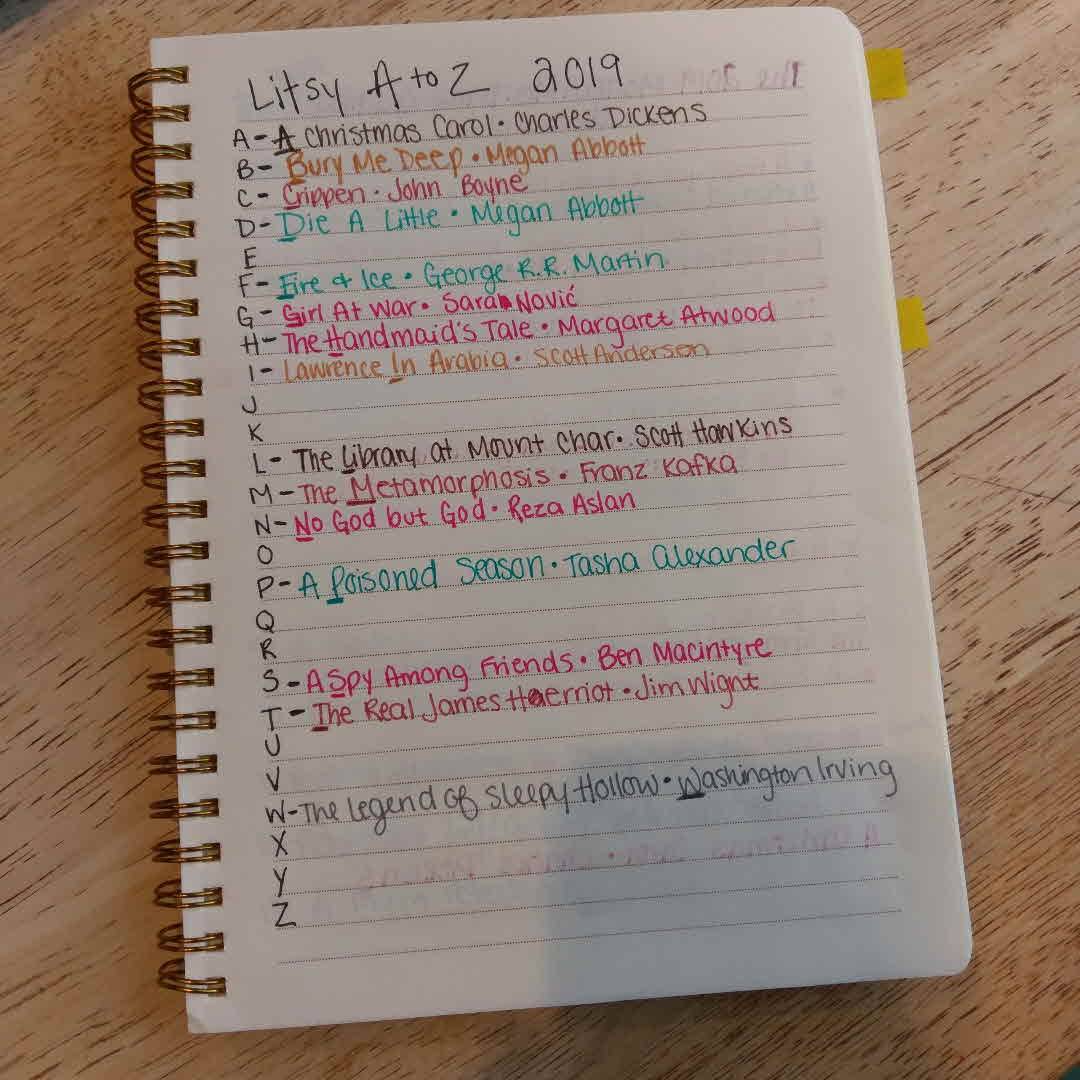 Litsy A to Z 2019
A - A Christmas Carol · Charles Dickens
B - Bury Me Deep · Megan Abbott
C - Crippen · John Boyne
D - Die A Little · Megan Abbott
E
F - Fire & Ice · George R.R. Martin
G - Girl At War · Sara Nović
H - The Handmaid's Tale · Margaret Atwood
I - Lawrence In Arabia · Scott Anderson
J
K
L - The Library at Mount Char · Scott Hawkins
M - The Metamorphosis · Franz Kafka
N - No God but God · Reza Aslan
O
P - A Poisoned Season · Tasha Alexander
Q
R
S - A Spy Among Friends · Ben Macintyre
T - The Real James Herriot · Jim Wight
U
V
W - The Legend of Sleepy Hollow · Washington Irving
X
Y
Z